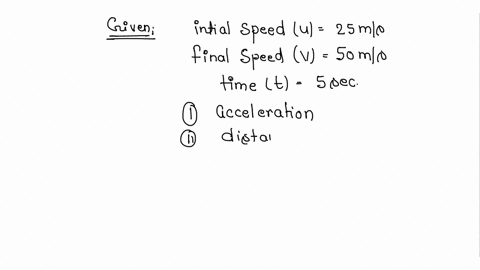 Given:
intial speed (u) = 25 m/s
final speed (v) = 50 m/s
time (t) = 5 sec.
(i) acceleration
(ii) dista